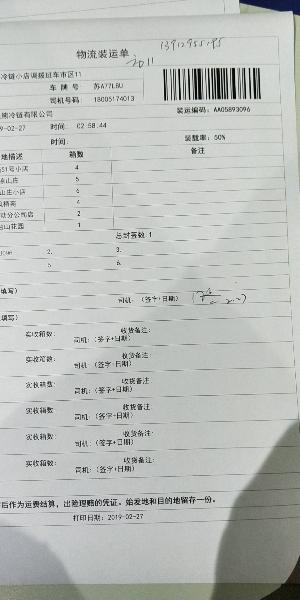 物流装运单
2011
冷链小店调拨班车市区11
车 牌 号 苏A77L8U
司机号码: 18005174013
装运编码: AA05893096
熊冷链有限公司
9-02-27 时间: 02:58:44
时间: 装载率: 50%
地描述 箱数 备注
S1号小店 4
山庄 5
山庄小店 6
4
动分公司店 2
山花园 1
总封签数 1
2. 3.
5. 6.
填写)
司机: (签字+日期)
填写)
实收箱数: 收货备注:
司机: (签字+日期)
实收箱数: 收货备注:
司机: (签字+日期)
实收箱数: 收货备注:
司机: (签字+日期)
实收箱数: 收货备注:
司机: (签字+日期)
实收箱数: 收货备注:
司机: (签字+日期)
实收箱数: 收货备注:
司机: (签字+日期)
后作为运费结算，出险理赔的凭证。始发地和目的地留存一份。
打印日期: 2019-02-27